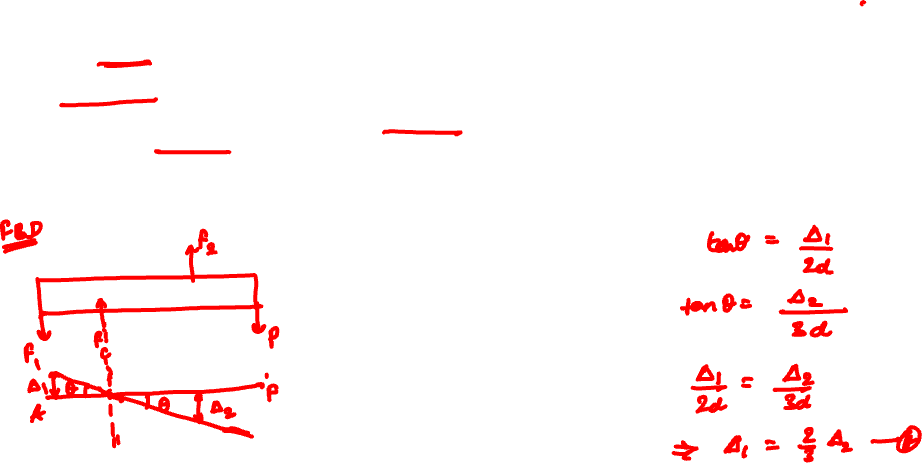 FBD
F₂
F₁
R
C
P
Δ₁
θ
θ
Δ₂
A
P
tanθ = Δ₁/2d
tanθ = Δ₂/3d
Δ₁/2d = Δ₂/3d
⇒ Δ₁ = 2/3 Δ₂ —